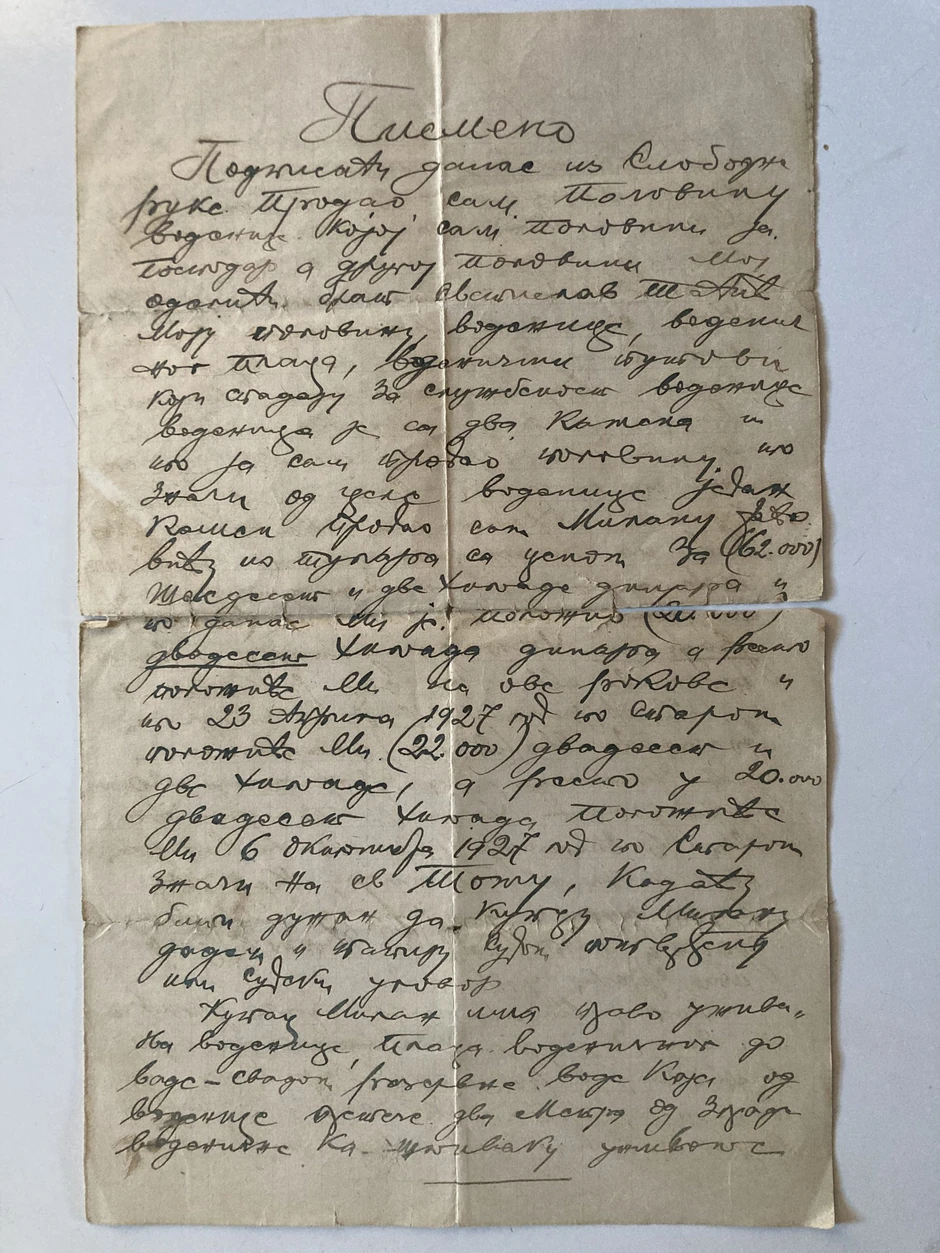 Писмено
Подписати данас из Слободне
руке Продао сам Половину
воденице којој сам половини ја
господар а другој половини мој
брат
моју половину воденице, воденич
ног плаца, воденични путови
који спадају за службеност воденице
воденица је са два Камена и
то ја сам продао половину то
значи од целе воденице један
Камен продао сам Милану
из за (62.000)
Шесдесет и две хиљаде динара и
то данас ми је положио
двадесет хиљада динара а ресто
положиће ми на ове рокове и
то 23 Априла 1927 год по Старом
положиће ми (22.000) двадесет и
две хиљаде, а ресто у 20.000
двадесет хиљада положиће
ми 6 октомбра 1927 год по Старом
значи на св Тому, Када ћу
бити дужан да Купцу Милану
дадем и Судом
или Судски уговор
Купац Милан има право ужива-
ња воденице, плаца воденичног до
воде воде Која од
воденице два Метра од Зграде
воденичне Ка